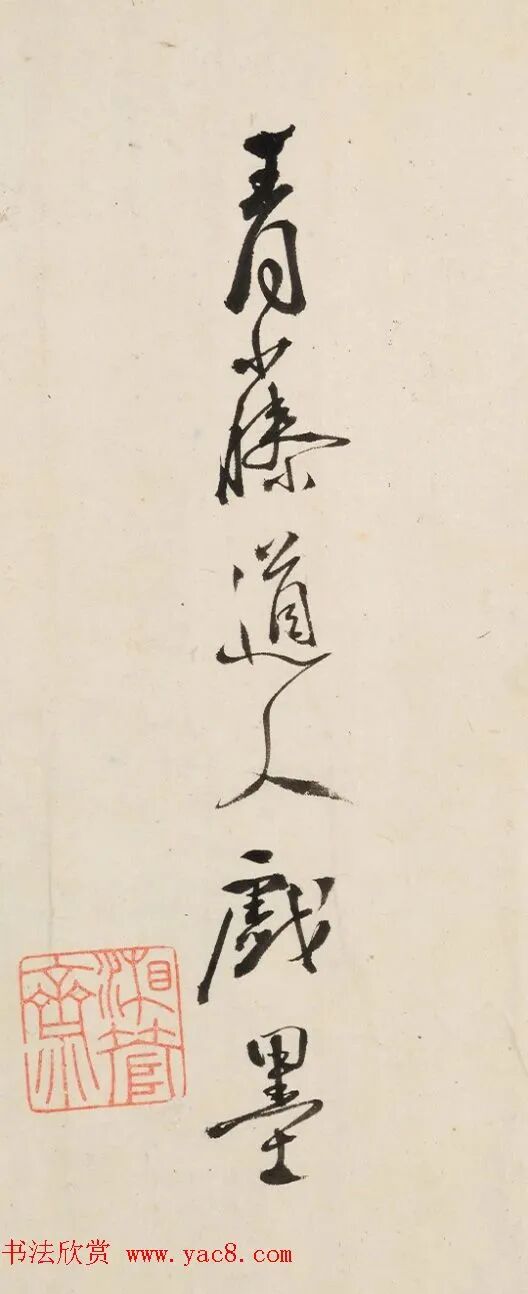 青藤道人戲墨
湘管齋
书法欣赏 www.yac8.com